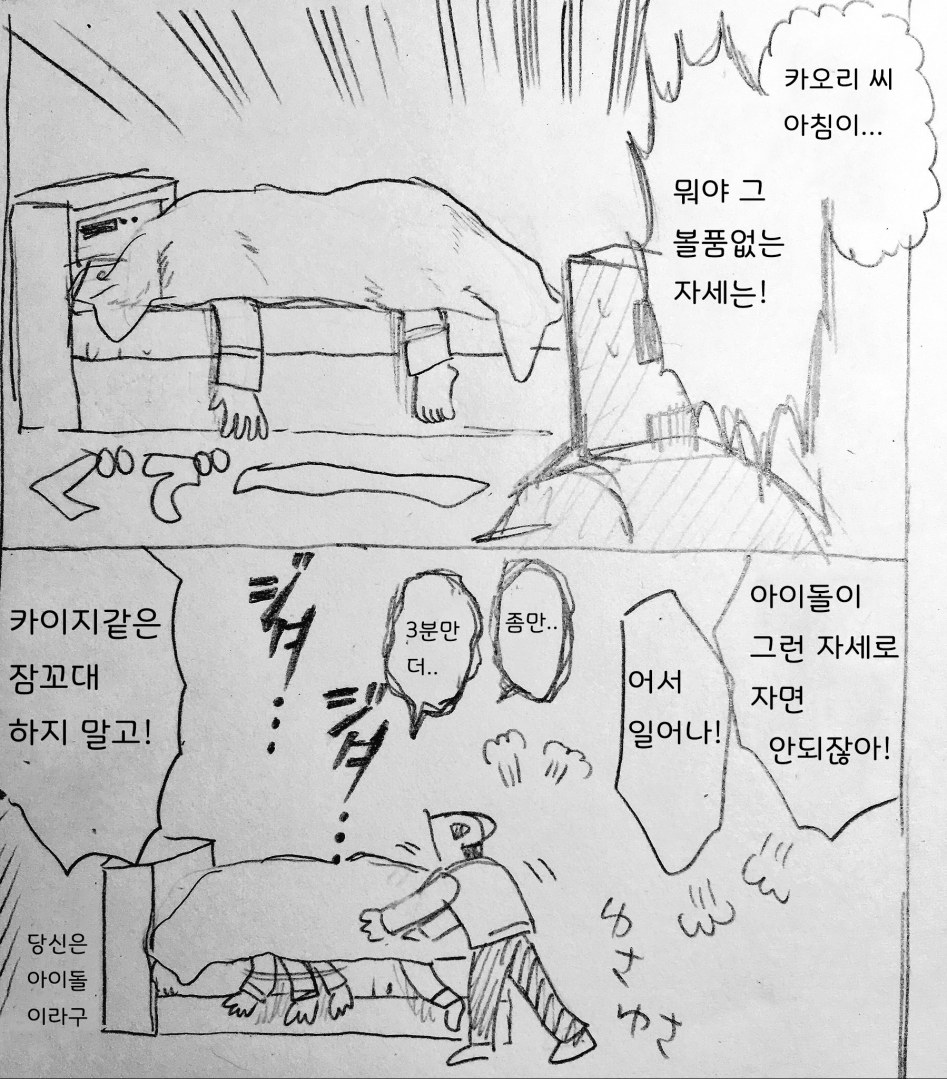 카오리 씨
아침이...
뭐야 그
볼품없는
자세는!
ぐごー
아이돌이
그런 자세로
자면
안되잖아!
어서
일어나!
좀만..
3분만
더..
ゆさ
ゆさ
카이지같은
잠꼬대
하지 말고!
당신은
아이돌
이라구